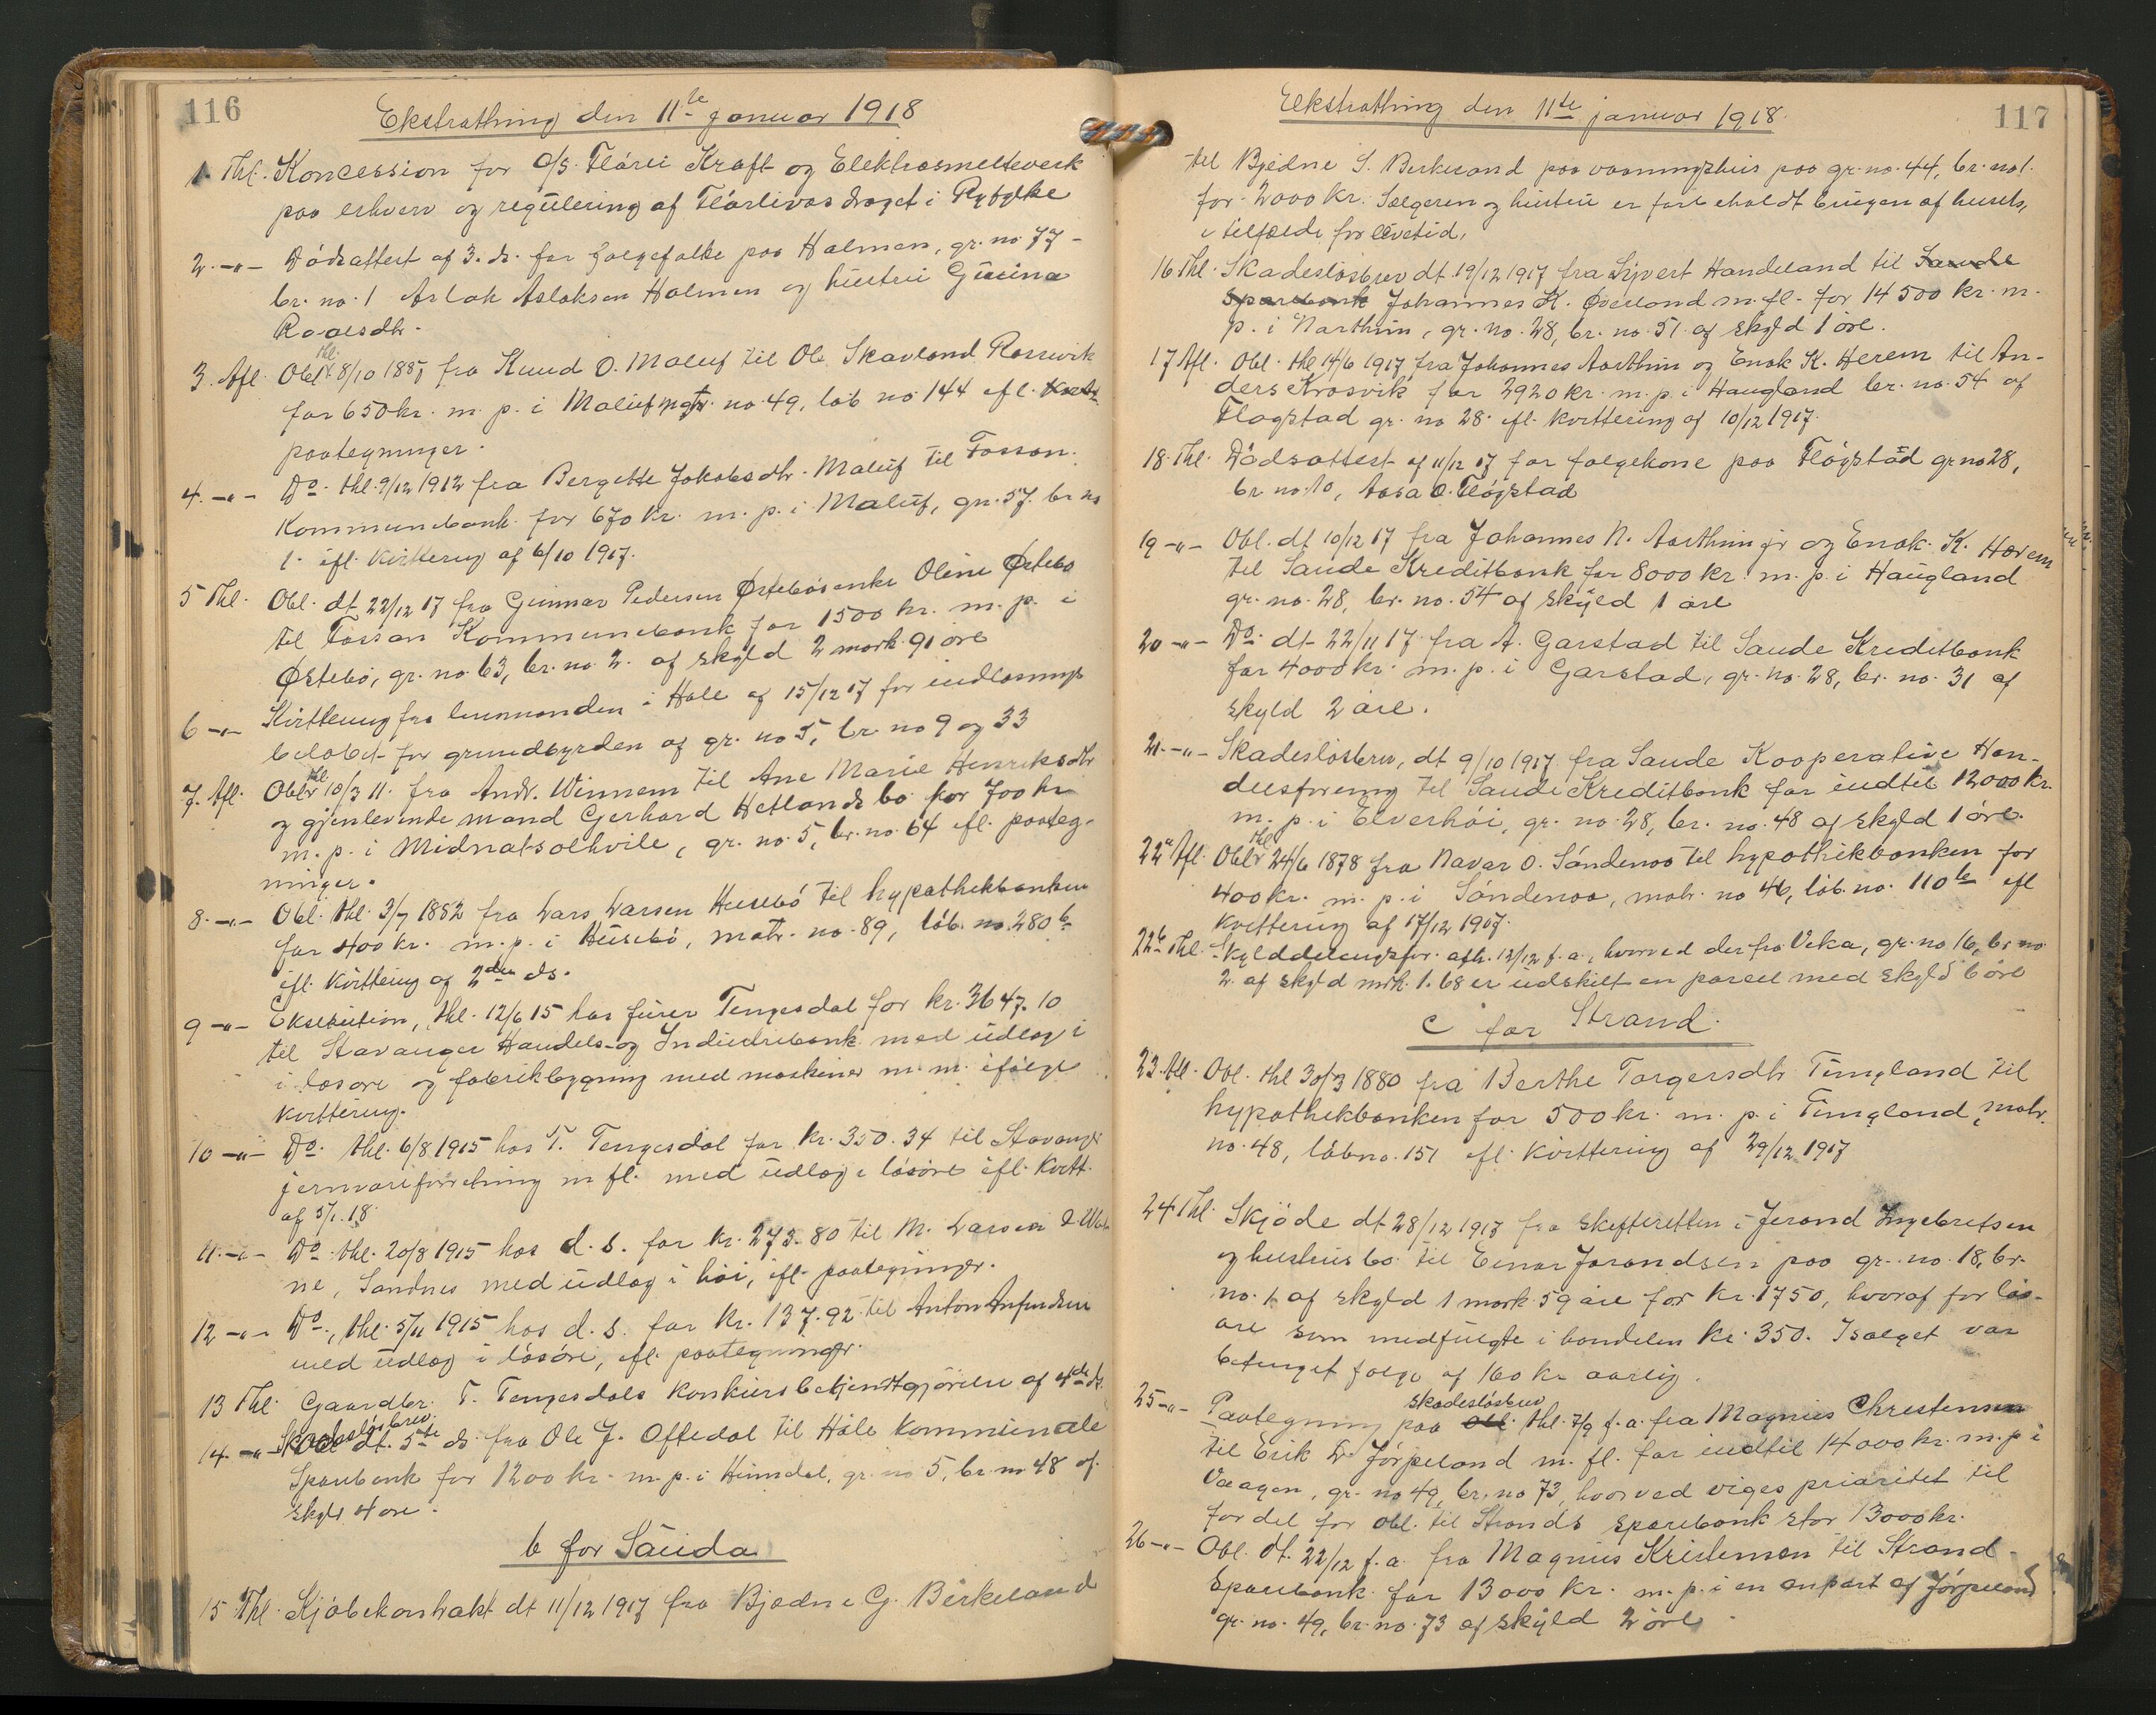 116
Ekstrathing den 11te januar 1918
1 Thl. Koncession for A/S. Flørli Kraft- og Elektrosmelteverk
paa erhverv og regulering af Flørlivasdraget i Ryfylke
2. -"- Dødsattest af 3. ds. for folgefolke paa Holmen, gr. no 77-
br. no. 1 Aslak Aslaksen Holmen og hustru Gurina
Roalsdtr.
3. Afl. Obl. thl. 8/10 1887 fra Knud O. Maluf til Ole Skavland Rossevik
for 650 kr. m. p. i Maluf mtr. no. 49, løb no 144 efl.
paategninger.
4. -"- Do. thl. 9/12 1912 fra Bergitte Jakobsdtr. Maluf til Fossan
Kommunebank for 670 kr. m. p. i Maluf, gn. 57. br no
1. ifl. kvittering af 6/10 1917.
5 Thl. Obl. dt 22/12 17 fra Gunnar Pedersen Østebøs enke Oline Østebø
til Fossan Kommunebank for 1500 kr. m. p. i
Østebø, gr. no. 63, br. no 2. af skyld 2 mark 91 øre
6 -"- Kvittering fra lensmanden i Høle af 15/12 17 for indløsnings
beløbet for grundbyrden af gr. no 5, br. no 9 og 33
7. Afl. Obl. thl 10/3 11. fra Andr. Winnem til Ane Marie Henriksdtr
og gjenlevende mand Gerhard Hetlands bo for 700 kr
m. p. i Midnatsolhvile, gr. no. 5, br. no. 64 efl. paateg-
ninger.
8. -"- Obl. thl. 3/7 1882 fra Lars Larsen Husebø til hypothekbanken
for 400 kr. m. p. i Husebø, matr. no. 89, løb. no. 280 b
ifl. kvittering af 2den ds.
9 -"- Eksekution, thl. 12/6 15 hos furer Tengesdal for kr. 3647.10
til Stavanger Handels- og Industribank med udlæg i
i løsøre og fabrikbygning med maskiner m. m. ifølge
kvittering.
10 -"- Do. thl. 6/8 1915 hos T. Tengesdal for kr. 350.34 til Stavanger
jernvareforretning m fl. med udlæg i løsøre ifl. kvitt.
af 5/1. 18
11. -"- Do. thl. 20/8 1915 hos d. s. for kr. 273.80 til M. Larsen &
ne, Sandnes med udlæg i høi, ifl. paategninger.
12 -"- Do., thl. 5/11 1915 hos d. s. for kr. 137.92 til Anton Anfindsen
med udlæg i løsøre, efl. paategninger.
13 Thl. Gaardbr. T. Tengesdals konkursbekjendtgjørelse af 4de ds.
14. -"- Skadesløsbrev dt. 5te ds fra Ole J. Oftedal til Høle kommunale
Sparebank for 1200 kr. m. p. i Hinndal, gr. no 5, br. no 48 af
skyld 4 øre.
b for Sauda
15 Thl. Kjøbekontrakt dt 11/12 1917 fra Bjedne G. Birkeland
117
Ekstrathing den 11te januar 1918.
til Bjedne S. Birkeland paa vaaningshus paa gr. no. 44, br. no 1.
for 2000 kr. Sælgeren og hustru er forbeholdt brugen af husets,
i tilfælde for levetid.
16 Thl. Skadesløsbrev dt. 19/12 1917 fra Sivert Handeland til Saude
Sparebank Johannes K. Øverland m. fl. for 14500 kr. m.
p. i Narthun, gr. no. 28, br. no. 51. af skyld 1 øre.
17 Afl. Obl. thl 14/6 1917 fra Johannes Aarthun og Enok K. Herem til An-
ders Krosvik for 2920 kr. m. p. i Haugland br. no. 54 af
Fløgstad gr. no 28. efl. kvittering af 10/12 1917.
18. Thl. Dødsattest af 11/12 17 for folgekone paa Fløgstad gr no 28,
br no. 10, Aasa O. Fløgstad
19 -"- Obl. dt 10/12 17 fra Johannes N. Aarthun jr og Enok. K. Herem
til Saude Kreditbank for 8000 kr. m. p. i Haugland
gr. no. 28, br. no. 54 af skyld 1 øre
20 -"- Do. dt 22/11 17 fra A. Garstad til Saude Kreditbank
for 4000 kr. m. p. i Garstad, gr. no. 28, br. no. 31 af
skyld 2 øre.
21. -"- Skadesløsbrev, dt 9/10 1917 fra Saude Kooperative Han-
delsforening til Saude Kreditbank for indtil 12000 kr.
m. p. i Elverhøi, gr. no. 28, br. no. 48 af skyld 1 øre.
22a Afl. Obl. thl 24/6 1878 fra Navar O. Søndenaa til hypothekbanken for
400 kr. m. p. i Søndenaa, matr. no 46, løb. no. 110 b efl
kvittering af 17/12 1907.
22b Thl. Skylddelingsfor. afh. 12/12 f. a., hvorved der fra Veka, gr. no 16, br no
2. af skyld mrk. 1.68 er udskilt en parcel med skyld 6 øre
c for Strand.
23. Afl. Obl. thl 30/3 1880 fra Berthe Torgersdtr Tungland til
hypothekbanken for 500 kr. m. p. i Tungland, matr.
no. 48, løbno. 151 efl. kvittering af 29/12 1917
24 Thl. Skjøde dt 28/12 1917 fra skifteretten i Jerand Ingebretsen
og hustrus bo til Einar Jørandsen paa gr. no. 18, br.
no. 1. af skyld 1 mark 59 øre for kr. 1750, hvoraf for løs-
øre som medfulgte i handelen kr. 350. I salget var
betinget folge af 160 kr aarlig.
25 -"- Paategning paa Obl. skadesløsbrev thl. 7/9 f. a. fra Magnus Christensen
til Erik L. Jørpeland m. fl. for indtil 14000 kr. m. p i
Vaagen, gr. no 49, br. no 73, hvorved viges prioritet til
fordel for obl. til Strands sparebank stor 13000 kr.
26 -"- Obl. dt. 22/12 f. a. fra Magnus Kristensen til Strand
Sparebank for 13000 kr. m. p. i en anpart af Jørpeland
gr. no. 49, br. no. 73 af skyld 2 øre